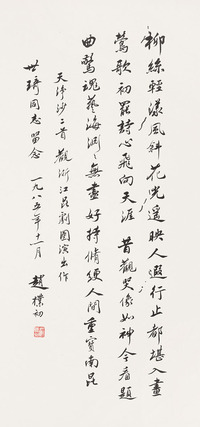 柳絲輕漾風斜花光遥映人遐行止都堪入畫
鶯歌初罷詩心飛向天涯 昔觀哭像如神今看題
曲驚魂藝海淵淵無盡好持脩綆人間重寶南昆
天淨沙二首 觀浙江昆劇團演出作
世琦同志留念
一九八五年十一月 趙樸初